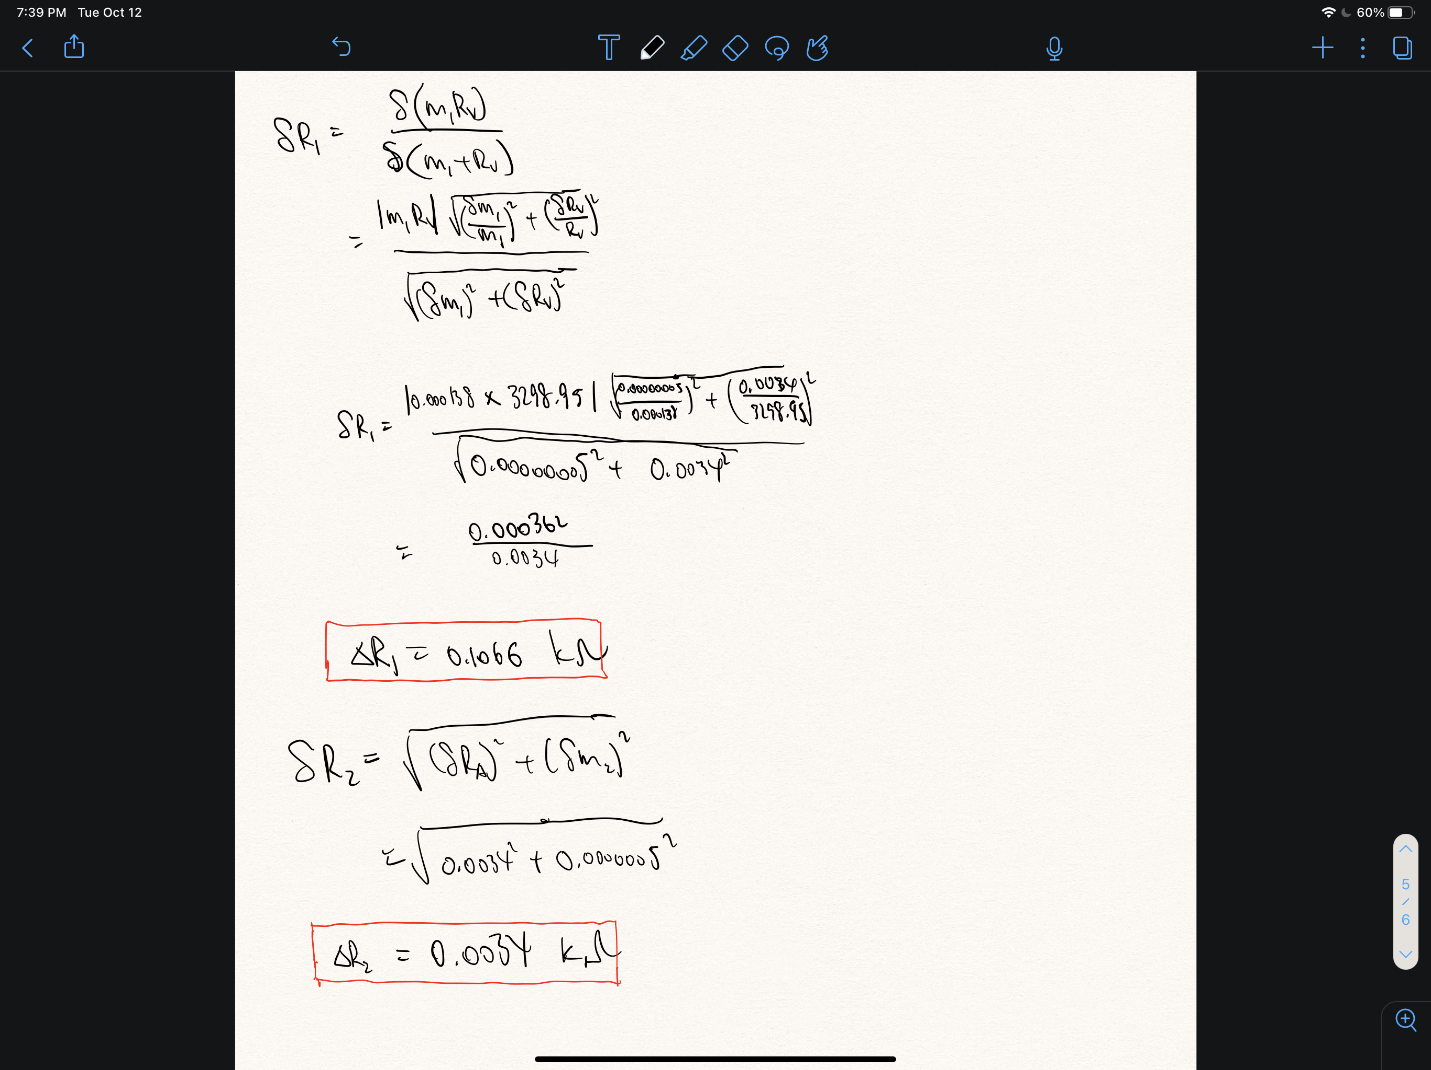 7:39 PM Tue Oct 12
60%
δR₁ = δ(m₁Rᵥ) / δ(m₁+Rᵥ)
= |m₁Rᵥ| √((δm₁/m₁)² + (δRᵥ/Rᵥ)²) / √((δm₁)² + (δRᵥ)²)
δR₁ = |0.000138 × 3298.95| √((0.00000005/0.000138)² + (0.0034/3298.95)²) / √(0.00000005² + 0.0034²)
= 0.000362 / 0.0034
ΔR₁ = 0.1066 kΩ
δR₂ = √((δR_A)² + (δm₂)²)
= √(0.0034² + 0.0000005²)
ΔR₂ = 0.0034 kΩ
5
/
6